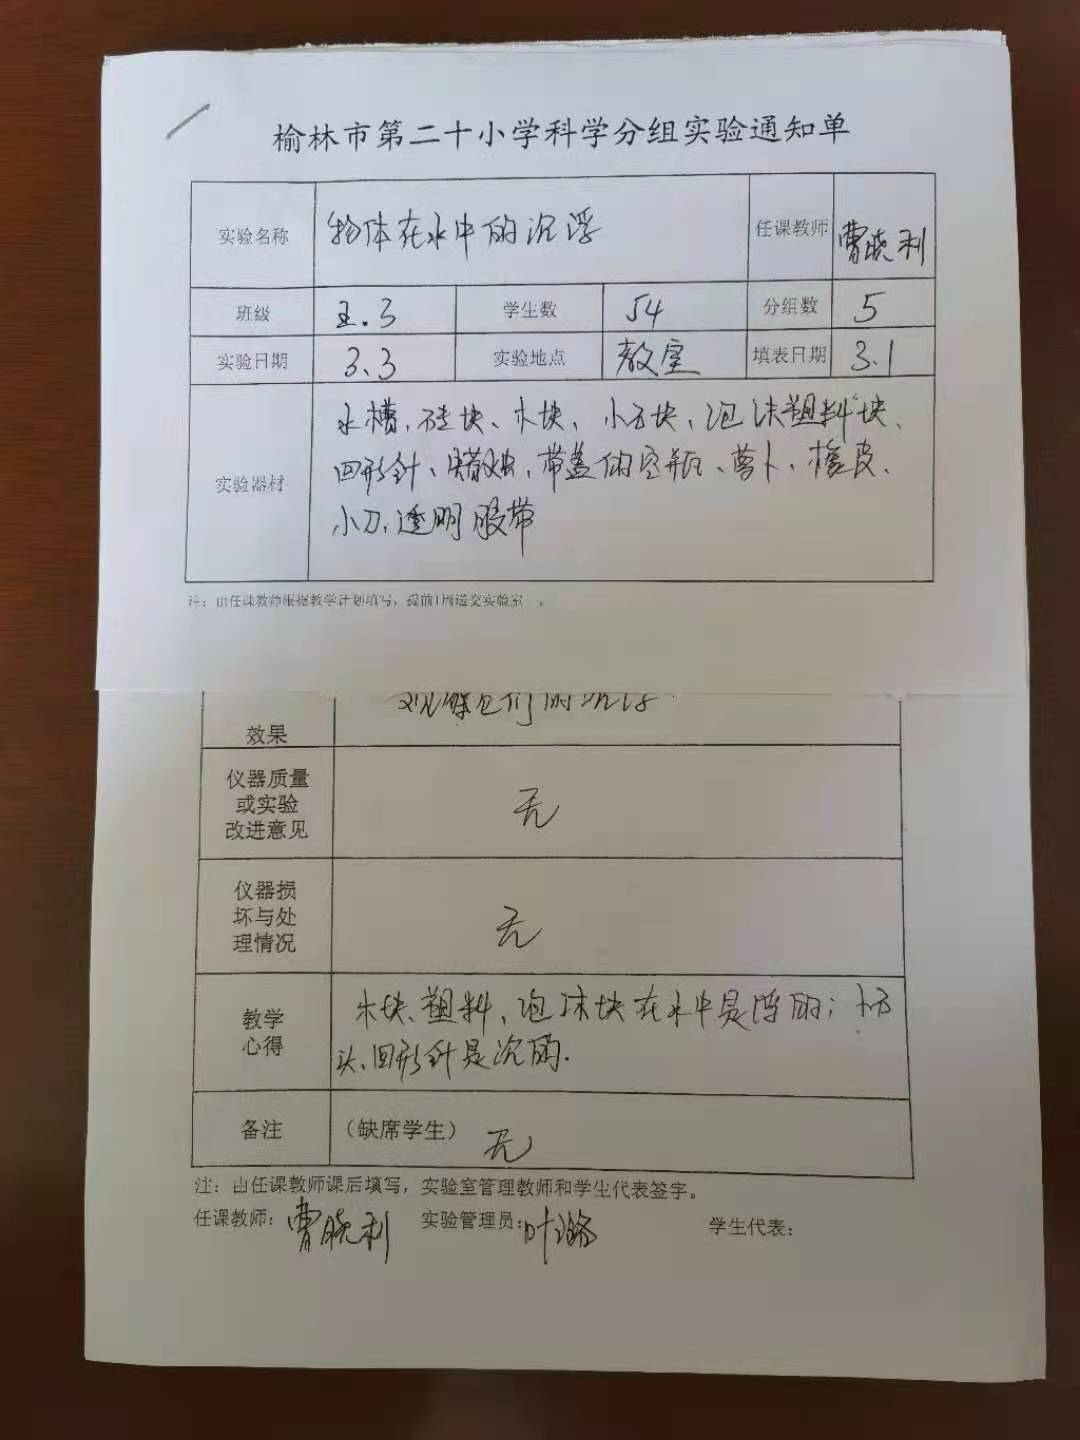 榆林市第二十小学科学分组实验通知单
实验名称 物体在水中的沉浮 任课教师 曹晓利
班级 五.3 学生数 54 分组数 5
实验日期 3.3 实验地点 教室 填表日期 3.1
实验器材 水槽,砖块、木块、小石块,泡沫塑料块、
回形针、蜡烛,带盖的空瓶、萝卜、橡皮、
小刀,透明胶带
注:由任课教师根据教学计划填写,提前1周送交实验室。
效果
仪器质量
或实验
改进意见
无
仪器损
坏与处
理情况
无
教学
心得
木块、塑料、泡沫块在水中是浮的;
头、回形针是沉的.
备注 (缺席学生) 无
注:由任课教师课后填写,实验室管理教师和学生代表签字。
任课教师:曹晓利 实验管理员:叶 学生代表: